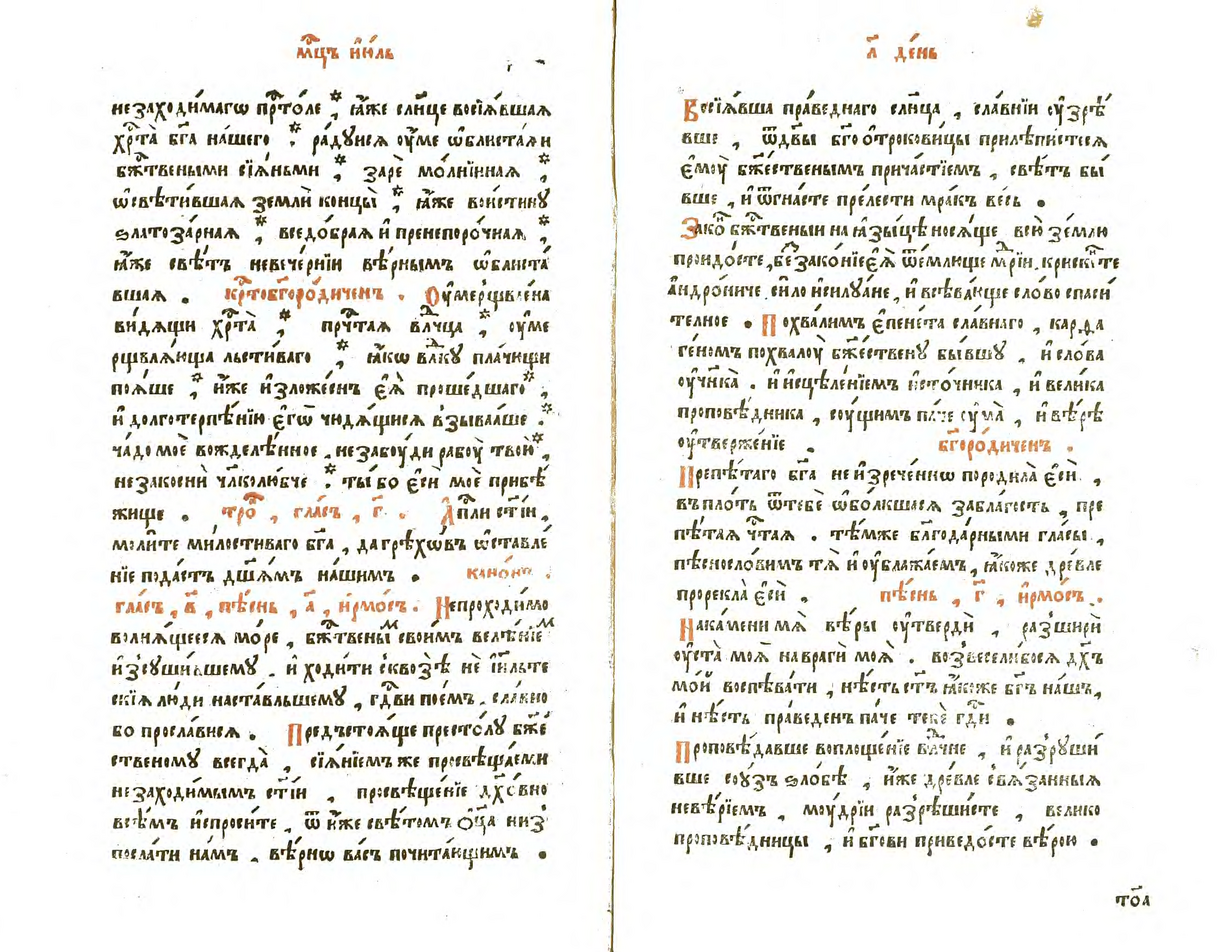 мⷭ҇цъ ию́ль
незаходи́магѡ прⷭ҇то́ле , ꙗ҆́же сл҃нце восїѧ́вшаѧ
хрⷭ҇та̀ бг҃а на́шего . ра́дуисѧ оу҆́ме ѡ҆блиста́ѧи
бж҃твеными сїѧ́ньми , зарѐ мо́лнїинаѧ ,
ѡ҆свѣти́вшаѧ землѝ концы̀ , ꙗ҆́же вои́стинꙋ
ѕлатоза́рнаѧ , вседо́браѧ и҆ пренепоро́чнаѧ ,
ꙗ҆́же свѣ́тъ невече́рнїи вѣ́рнымъ ѡ҆блиста́
вшаѧ . крⷭ҇тобг҃оро́диченъ . Оу҆мерщвле́на
ви́дѧщи хрⷭ҇та̀ , прⷱ҇таѧ влⷣчца , оу҆ме
рщвлѧ́юща льсти́ваго , ꙗ҆́кѡ влⷣкꙋ пла́чющи
поѧ́ше , и҆́же и҆зложе́снъ є҆ѧ̀ проше́дшаго ,
и҆ долготерпѣ́нїю є҆гѡ̀ чюдѧ́щисѧ взыва́ѧше .
ча́до моѐ вожделѣ́нное , незабоу́ди рабоу̀ твою̀ ,
незакоснѝ чл҃колю́бче . ты́ бо є҆сѝ моѐ прибѣ́
жище . тро́ , гла́съ , г҃ . А҆пⷭ҇ли ст҃і́и ,
моли́те ми́лостиваго бг҃а , да грѣхѡ́въ ѡ҆ставле́
нїе пода́стъ дш҃а́мъ на́шимъ . кано́нъ .
гла́съ , в҃ , пѣ́снь , а҃ , і҆рмо́съ . Непроходи́мо
волнѧ́щеесѧ мо́ре , бж҃твены́м свои́мъ велѣ́нїем
и҆зсꙋши́вшемꙋ . и҆ ходи́ти сквозѣ̀ нѐ і҆и҃льте
скїѧ лю́ди наста́вльшемꙋ , гдⷭ҇ви пое́мъ . сла́вно
бо просла́висѧ . Предъстоѧ́ще престо́лꙋ бж҃е
ственомꙋ всегда̀ , сїѧ́нїемъ же просвѣща́еми
незаходи́мымъ ст҃і́и , просвѣще́нїе дꙋхо́вно
всѣ́мъ и҆спроси́те , ѿ и҆́же свѣ́томъ ѻ҆ц҃а низ
посла́ти на́мъ , вѣ́рнѡ ва́съ почита́ющимъ .
л҃ де́нь
Восїѧ́вша пра́веднаго сл҃нца , сла́внїи оу҆зрѣ́
вше , ѿдв҃ы бг҃оѻ҆трокови́цы прилѣпи́стесѧ
є҆моу̀ бж҃ественымъ прича́стїемъ , свѣ́тъ бы́
вше , и҆ ѿгна́сте пре́лести мра́къ ве́сь .
Зако́н бж҃твеныи на ꙗ҆зы́цѣ носѧ́ще всю̀ зе́млю
проидо́сте , беззако́нїе є҆ѧ̀ ѿе́млюще мрⷣїи . криски́те
А҆ндро́ниче . си́ло и҆силꙋа́не , и҆ всѣва́юще сло́во спаси́
телное . Похва́лимъ є҆пене́та сла́внаго , карѳа
ге́номъ похвалоу̀ бж҃ественꙋ бы́вшꙋ , и҆ сло́ва
оу҆чн҃ка̀ . и҆ и҆сцѣле́нїемъ и҆сто́чника , и҆ вели́ка
проповѣ́дника , соу́щимъ па́че оу҆ма̀ , и҆ вѣ́рѣ
оу҆твержє́нїе . бг҃оро́диченъ .
Препѣ́таго бг҃а неи҆зрече́ннѡ породила̀ є҆сѝ ,
въ пло́ть ѿтебѐ ѡ҆бо́лкшасѧ за бла́гость , пре
пѣ́таѧ чⷭ҇таѧ . тѣ́мже бл҃года́рными гла́сы ,
пѣснослови́мъ тѧ̀ и҆ оу҆блажа́емъ , ꙗ҆́коже дре́вле
прорекла̀ є҆сѝ , пѣ́снь , г҃ , і҆рмо́съ .
На ка́мени мѧ̀ вѣ́ры оу҆твердѝ , разширѝ
оу҆ста̀ моѧ̀ на врагѝ моѧ̀ . возвесели́босѧ дх҃ъ
мо́й воспѣва́ти , нѣ́сть ст҃ъ ꙗ҆́коже бг҃ъ на́шъ ,
и҆ нѣ́сть пра́веденъ па́че тебѐ гдⷭ҇и .
Проповѣ́давше воплоще́нїе влⷣчне , и҆ разрꙋши́
вше соу́зъ ѕло́бѣ , и҆́же дре́вле свѧ́занныѧ
невѣ́рїемъ , моу́дрїи разрѣши́сте , вели́ко
проповѣ́дницы , и҆ бг҃ови приведо́сте вѣ́рою .
то҃а